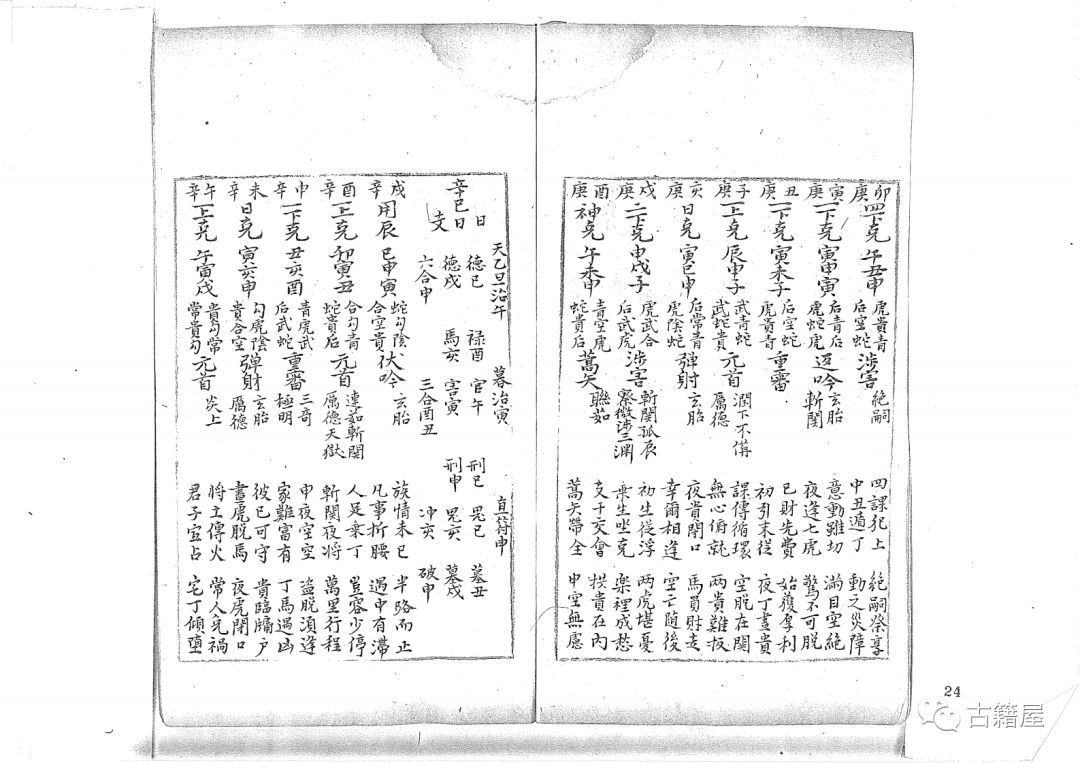 卯庚 四下克 午丑申 虎貴青 后空蛇 涉害 絕嗣 四課犯上 絕嗣祭享
中丑遁丁 動之災障
寅庚 一下克 寅申寅 后青后 虎蛇虎 返吟 玄胎 斬関 意動雖切 滿目空絕
夜逢七虎 驚不可脫
丑庚 一下克 寅未子 后空蛇 虎貴青 重審 已財先費 始獲厚利
初引末從 夜丁晝貴
子庚 一上克 辰申子 武青蛇 武蛇貴 元首 潤下不俻 厲德 課傳循環 空脫在関
無心俯就 两貴難扳
亥庚 日克 寅巳申 后常青 虎陰蛇 彈射 玄胎 夜貴閉口 馬買財走
幸爾相逢 空亡随後
戌庚 二下克 申戌子 虎武合 后武虎 涉害 斬関孤辰 察微涉三渊 初生從浮 两虎堪憂
乘生坐克 樂裡成愁
酉庚 神克 午未申 青空虎 蛇貴后 蒿矢 聯茹 支干交會 拱貴在内
蒿矢帶金 申空無慮
天乙旦治午 暮治寅 直符申
辛巳日 日 德巳 禄酉 官午 刑巳 晃巳 墓丑
支 德戌 馬亥 害寅 刑申 晃亥 墓戌
六合申 三合酉丑 冲亥 破申
戌辛 用辰 巳申寅 蛇勾陰 合空貴 伏吟 玄胎 族情未已 半路而止
凡事折腰 過中有滯
酉辛 一上克 卯寅丑 合勾青 蛇貴后 元首 連茹斬関 厲德天獄 人足乗丁 豈容少停
斬関夜将 萬里行程
申辛 一下克 丑亥酉 青虎武 后武蛇 重審 三奇 極明 申夜空空 盗脫須逢
家難富有 丁馬遇凶
未辛 日克 寅亥申 勾虎陰 貴合空 彈射 玄胎 厲德 彼已可守 貴臨牖户
晝虎脫馬 夜虎閉口
午辛 一上克 午寅戌 貴勾常 常貴勾 元首 炎上 将土傳火 常人免禍
君子宜占 宅丁傾墮
24
古籍屋